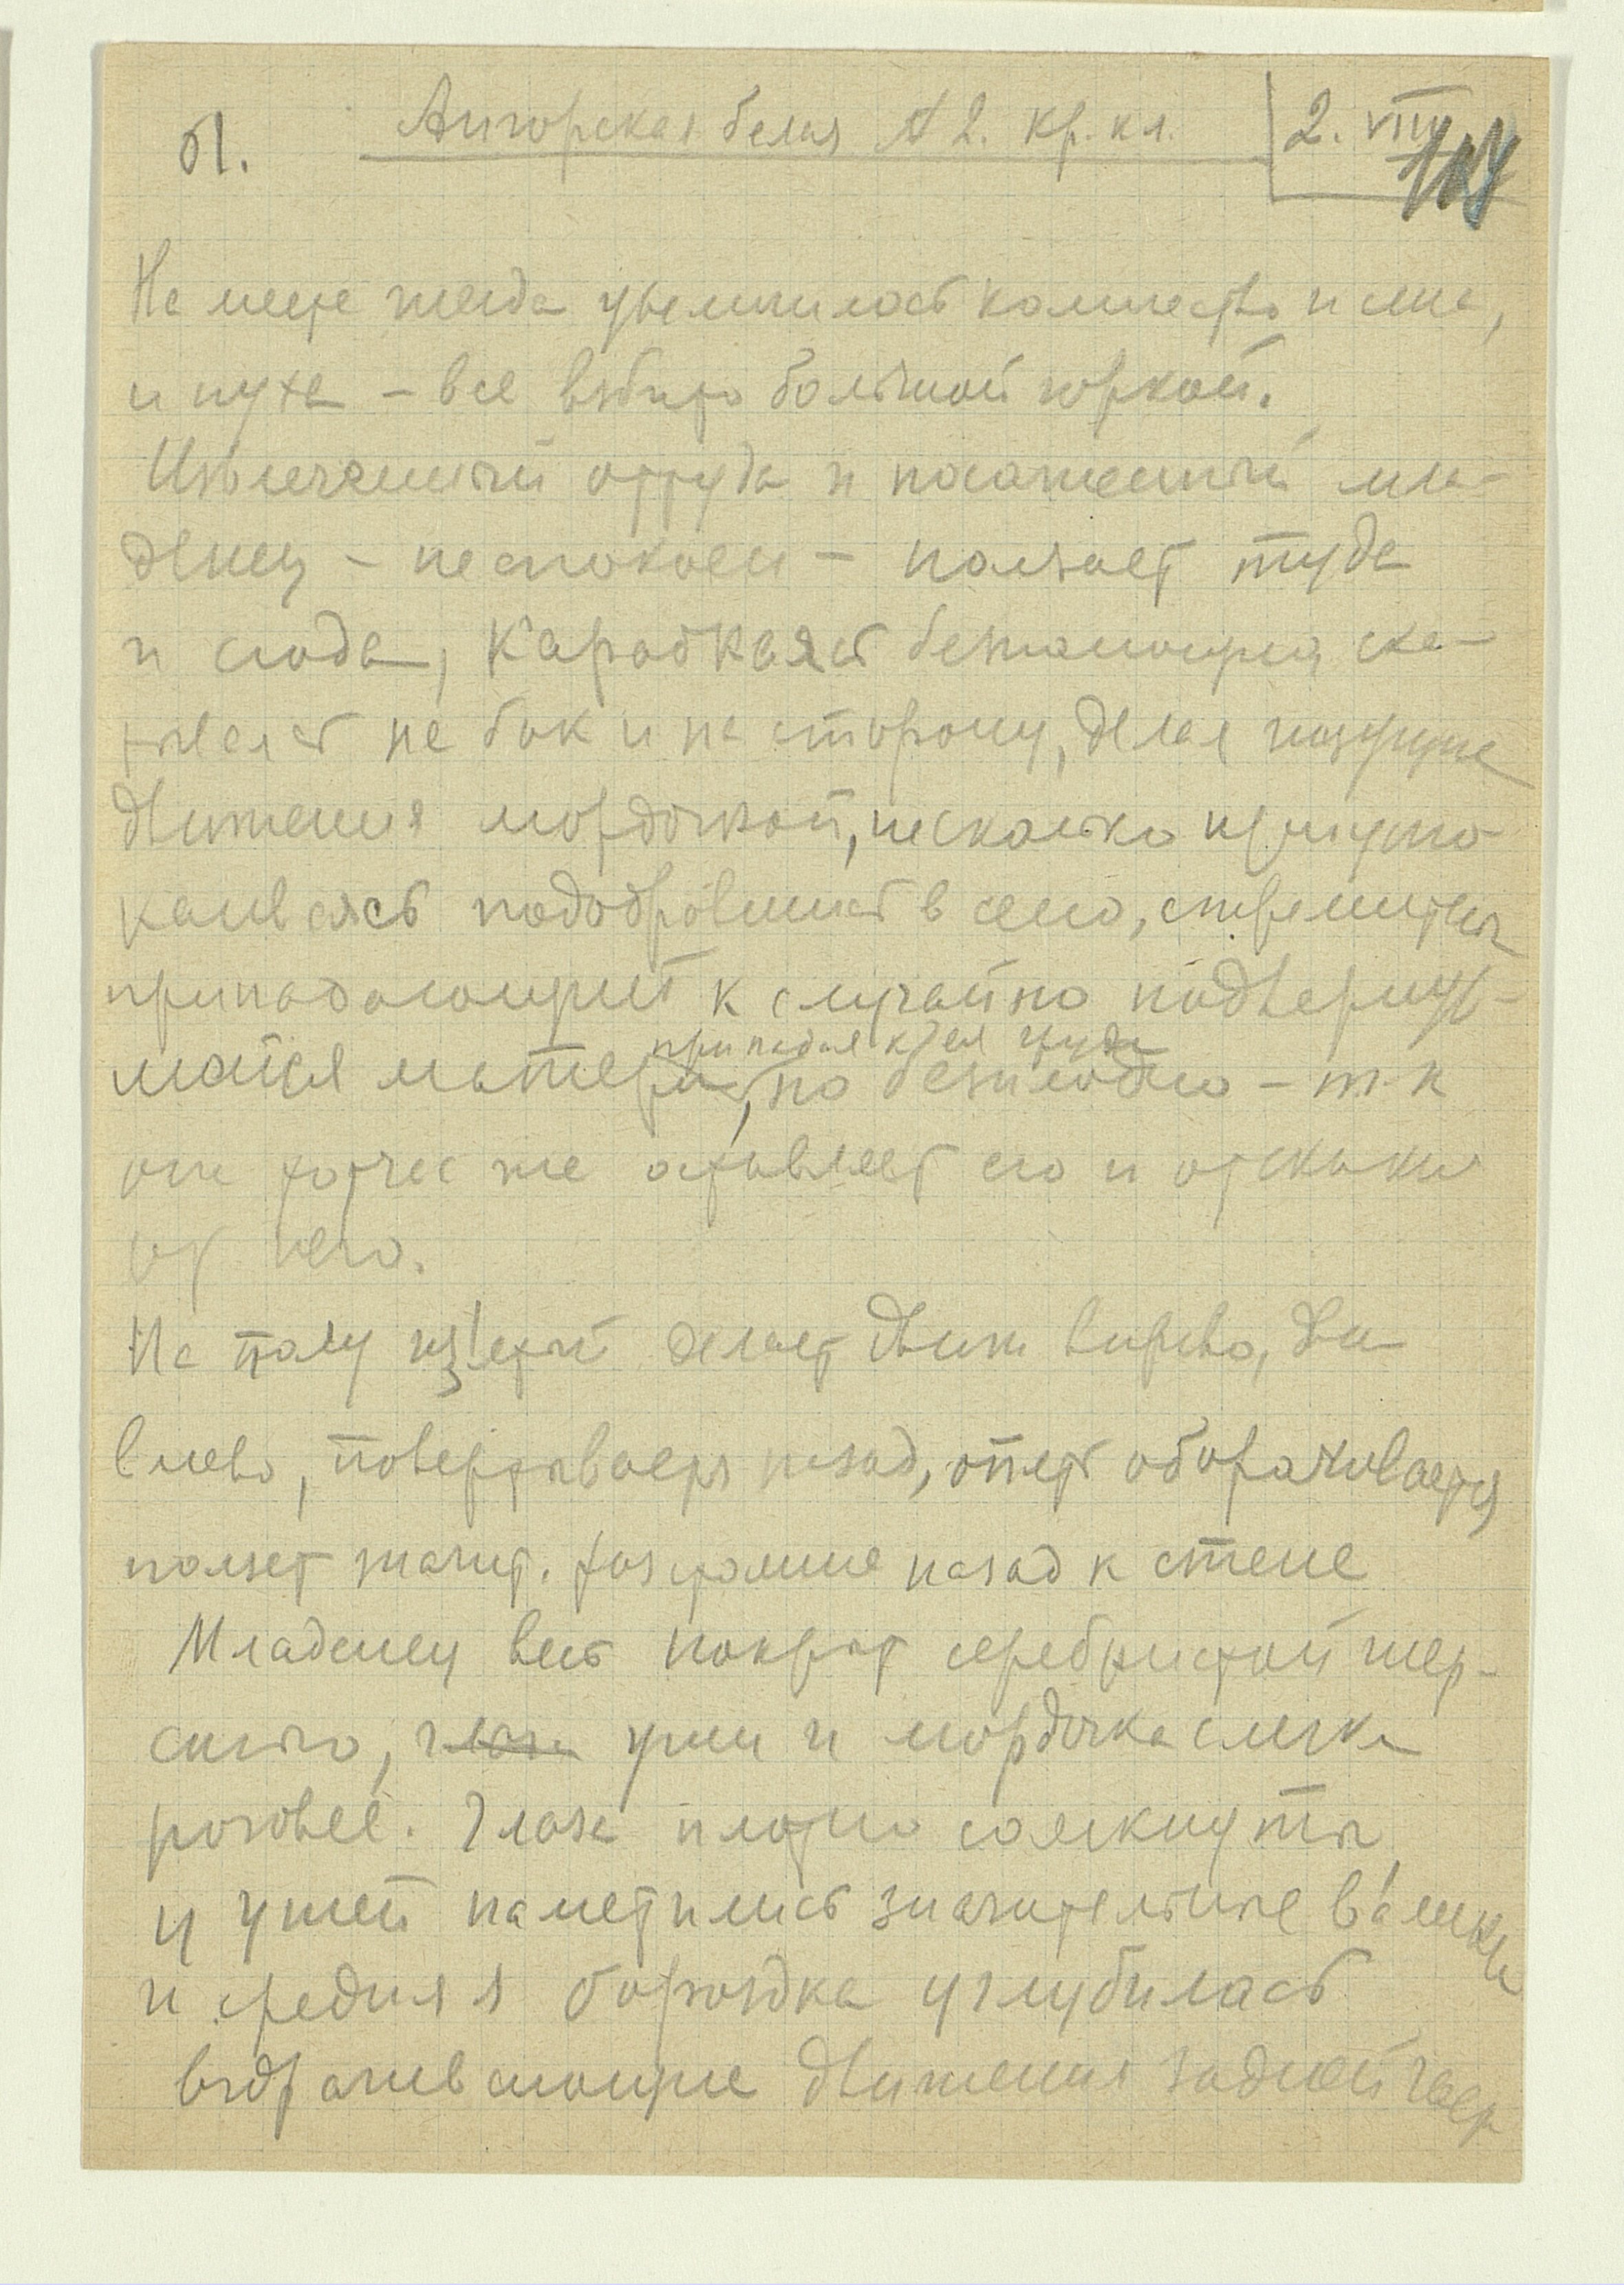 61. Ангорская белая № 2. кр. кл. 2. VIII
На месте гнезда увеличилось количество и сена,
и пуха – все взбито большой горкой.
Извлеченный оттуда и положенный мла-
денец – неспокоен – ползает туда
и сюда, карабкаясь беспомощно, ска-
тываясь на бок и на сторону, делая ищущие
движения мордочкой, несколько
подобравшись в сено, стремится
к случайно подвернув-
шейся матери, припадая к ея груди, но безплодно – т. к
она тотчас же оставляет его и отскакив
от него.
На полу делает движ вправо, дв
влево, повертывается назад, опять оборачивается
ползет значит. расстояние назад к стене
Младенец весь покрыт серебристой шер-
стью, глаза уши и мордочка слегка
розовее. Глаза плотно сомкнуты,
у ушей наметились значительные вы́емки
и средняя бороздка углубилась
вздрагивающие движения задней част